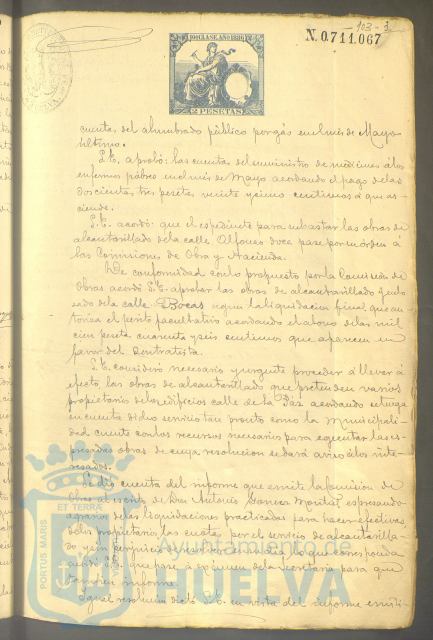 103-3
10ª CLASE. AÑO 1886
N. 0.711.067
2 PESETAS
cuenta del alumbrado público por gás en el mes de Mayo
último.
S.E. aprobó: las cuenta del suministro de medicinas á los
enfermos pobres en el mes de Mayo acordando el pago de las
doscientas tres peseta, veinte y cinco centimos á que as-
ciende.
S.E. acordó: que el espediente para subastar las obras de
alcantarillado de la calle Alfonso doce pase por su órden á
las Comisiones de Obra y Hacienda.
De conformidad con lo propuesto por la Comision de
Obras acordó S.E. aprobar las obras de alcantarillado
de la calle Bocas segun la liquidacion final que au-
toriza el perito facultativo acordando el abono de las mil
cien peseta cuarenta y seis centimos que aparecen en
favor del Contratista.
S.E. consideró necesario y urgente proceder á llevar á
efecto, las obras de alcantarillado que pretenden varios
propietarios de los edificios calle de la Paz acordando se tenga
en cuenta dicho servicio tan pronto como la Municipali-
dad cuente con los recursos necesarios para egecutar las es-
presadas obras de cuya resolucion se dará aviso á los inte-
resados.
Se dió cuenta del informe que emite la Comision de
Obras al escrito de Don Antonio Garcia
de las liquidaciones practicadas para hacer efectivas
de los propietarios las cuotas por el servicio de alcantarilla-
do
que pase á exámen de la Secretaría para que
tambien informe.
Igual resolucion dictó S.E. en vista del informe emiti-
ET TERRÆ
PORTUS MARIS
Ayuntamiento de
HUELVA